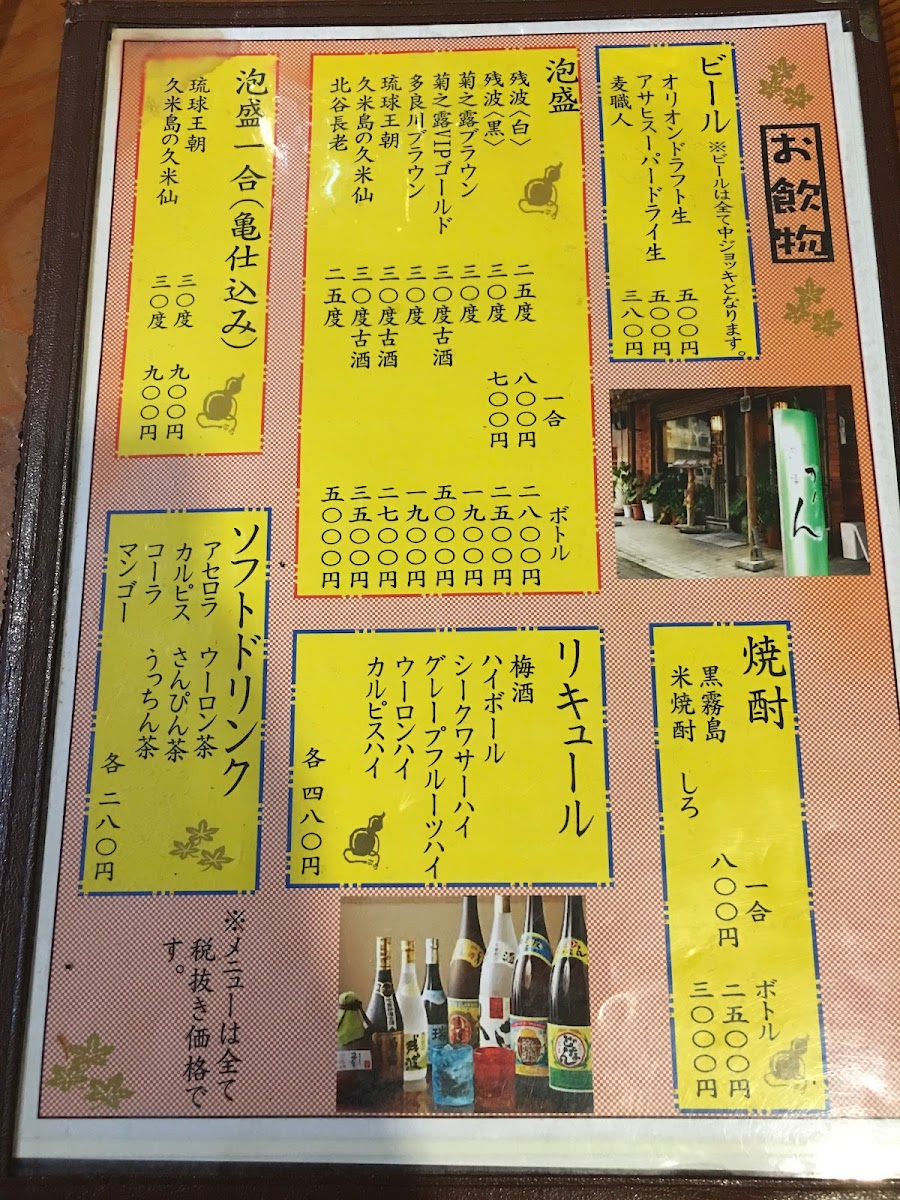 お飲物
ビール ※ビールは全て中ジョッキとなります。
オリオンドラフト生 五〇〇円
アサヒスーパードライ生 五〇〇円
麦職人 三八〇円
泡盛 一合 ボトル
残波〈白〉 二五度 八〇〇円 二八〇〇円
残波〈黒〉 三〇度 七〇〇円 二五〇〇円
菊之露ブラウン 三〇度 一九〇〇円
菊之露VIPゴールド 三〇度古酒 五〇〇〇円
多良川ブラウン 三〇度 一九〇〇円
琉球王朝 三〇度古酒 二七〇〇円
久米島の久米仙 三〇度古酒 三五〇〇円
北谷長老 二五度 五〇〇〇円
泡盛一合(亀仕込み)
琉球王朝 三〇度 九〇〇円
久米島の久米仙 三〇度 九〇〇円
焼酎 一合 ボトル
黒霧島 八〇〇円 二五〇〇円
米焼酎 しろ 三〇〇〇円
リキュール
梅酒
ハイボール
シークワサーハイ
グレープフルーツハイ
ウーロンハイ
カルピスハイ
各 四八〇円
ソフトドリンク
アセロラ ウーロン茶
カルピス さんぴん茶
コーラ うっちん茶
マンゴー
各 二八〇円
※メニューは全て
税抜き価格で
す。
残波